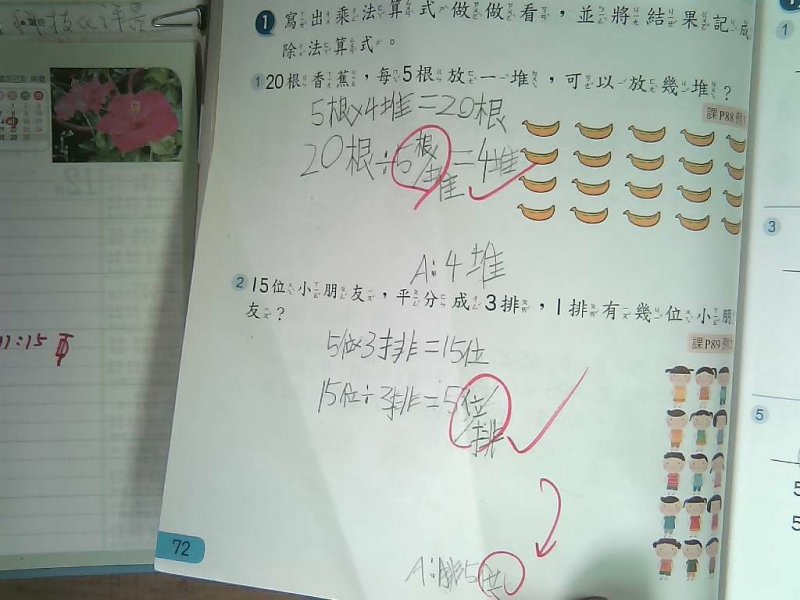 1 寫出乘法算式做做看，並將結果記成
除法算式。
1 20根香蕉，每5根放一堆，可以放幾堆？
課P88例
5根×4堆=20根
20根÷5根/堆=4堆
A:4堆
2 15位小朋友，平分成3排，1排有幾位小朋
友？
課P89例
5位×3排=15位
15位÷3排=5位/排
A: 5位
72
1
3
5
5
5
11:15